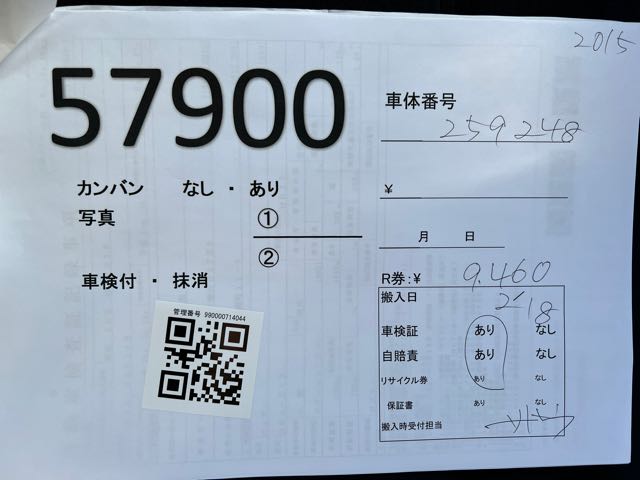 2015
57900
車体番号
259248
カンバン なし ・ あり
¥
写真 ①
②
月 日
車検付 ・ 抹消
R券:¥ 9.460
管理番号 990000714044
搬入日 2/18
車検証 あり なし
自賠責 あり なし
リサイクル券 あり なし
保証書 あり なし
搬入時受付担当